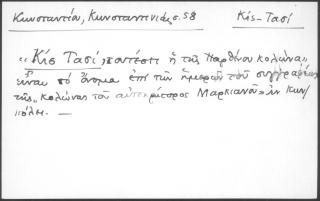 Κωνσταντίου, Κωνσταντινιάς σ. 58
Κίσ-Τασί
"Κίσ Τασί, τουτέστι ἡ τῆς Παρθένου κολώνα"
Εἶναι τὸ ὄνομα ἐπὶ τῶν ἡμερῶν τοῦ συγγραφέως
τῆς "κολώνας τοῦ αὐτοκράτορος Μαρκιανοῦ" ἐν Κων/
πόλει. —